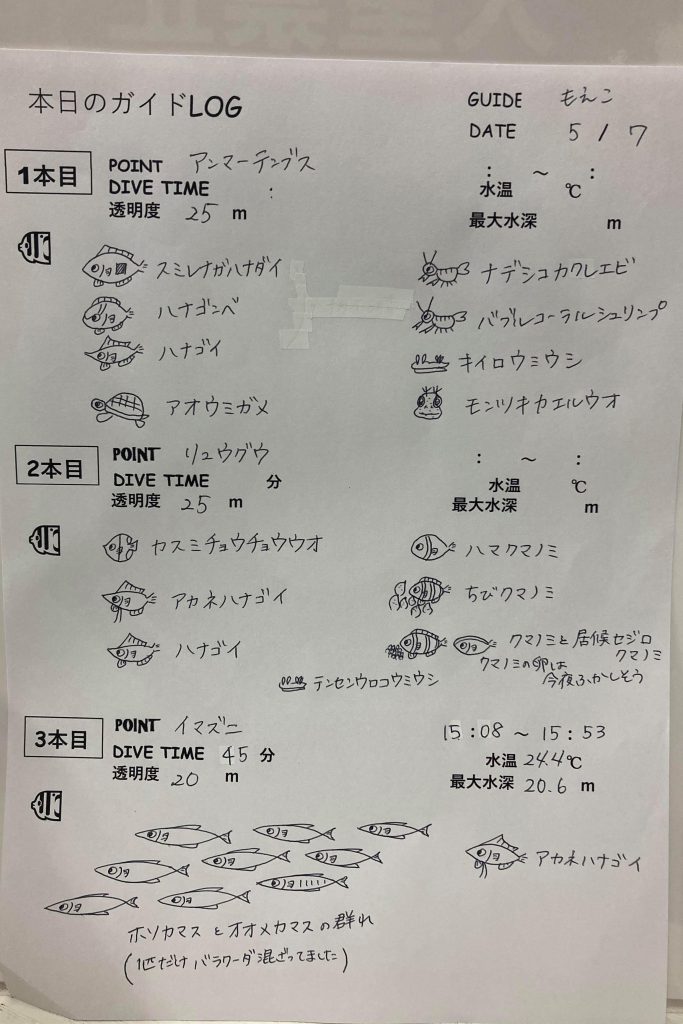 本日のガイドLOG
GUIDE もえこ
DATE 5 / 7
1本目
POINT アンマーテングス
DIVE TIME :
: ～ :
水温 ℃
透明度 25 m
最大水深 m
スミレナガハナダイ
ナデシコカクレエビ
ハナゴンベ
バブルコーラルシュリンプ
ハナゴイ
キイロウミウシ
アオウミガメ
モンツキカエルウオ
2本目
POINT リュウグウ
: ～ :
DIVE TIME 分
水温 ℃
透明度 25 m
最大水深 m
カスミチョウチョウウオ
ハマクマノミ
アカネハナゴイ
ちびクマノミ
ハナゴイ
クマノミと居候セジロ
クマノミ
クマノミの卵は
今夜ふかしそう
テンセンウロコウミウシ
3本目
POINT イマズニ
15:08 ～ 15:53
DIVE TIME 45 分
水温 24.4℃
透明度 20 m
最大水深 20.6 m
アカネハナゴイ
ホソカマスとオオメカマスの群れ
(1匹だけバラクーダ混ざってました)